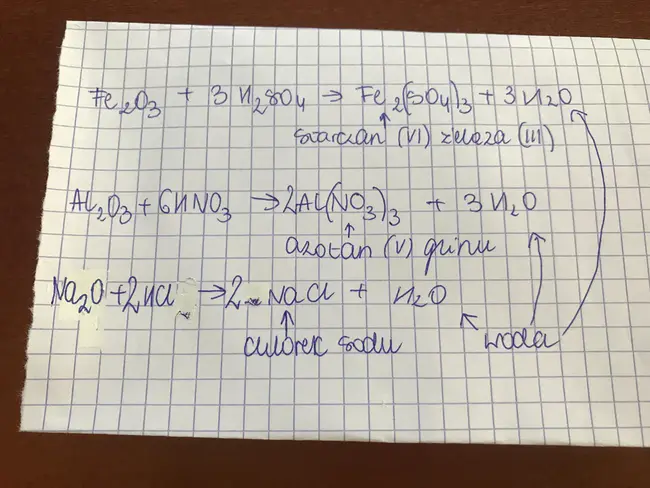 Fe₂O₃ + 3 H₂SO₄ → Fe₂(SO₄)₃ + 3 H₂O
siarczan (VI) żelaza (III)
Al₂O₃ + 6HNO₃ → 2Al(NO₃)₃ + 3 H₂O
azotan (V) glinu
Na₂O + 2HCl → 2 NaCl + H₂O
chlorek sodu
woda